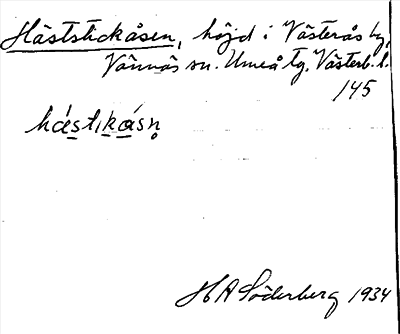 Häststickåsen, höjd i Västerås by,
Vännäs sn. Umeå tg. Västerb. l.
145
hástikåsn̥
H A Söderberg 1934